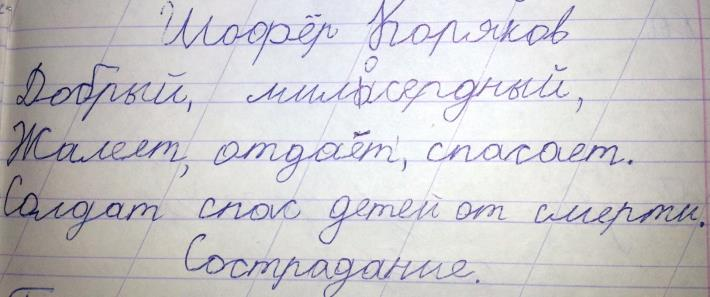 Шофёр Коряков
Добрый, милосердный,
Жалеет, отдаёт, спасает.
Солдат спас детей от смерти.
Сострадание.